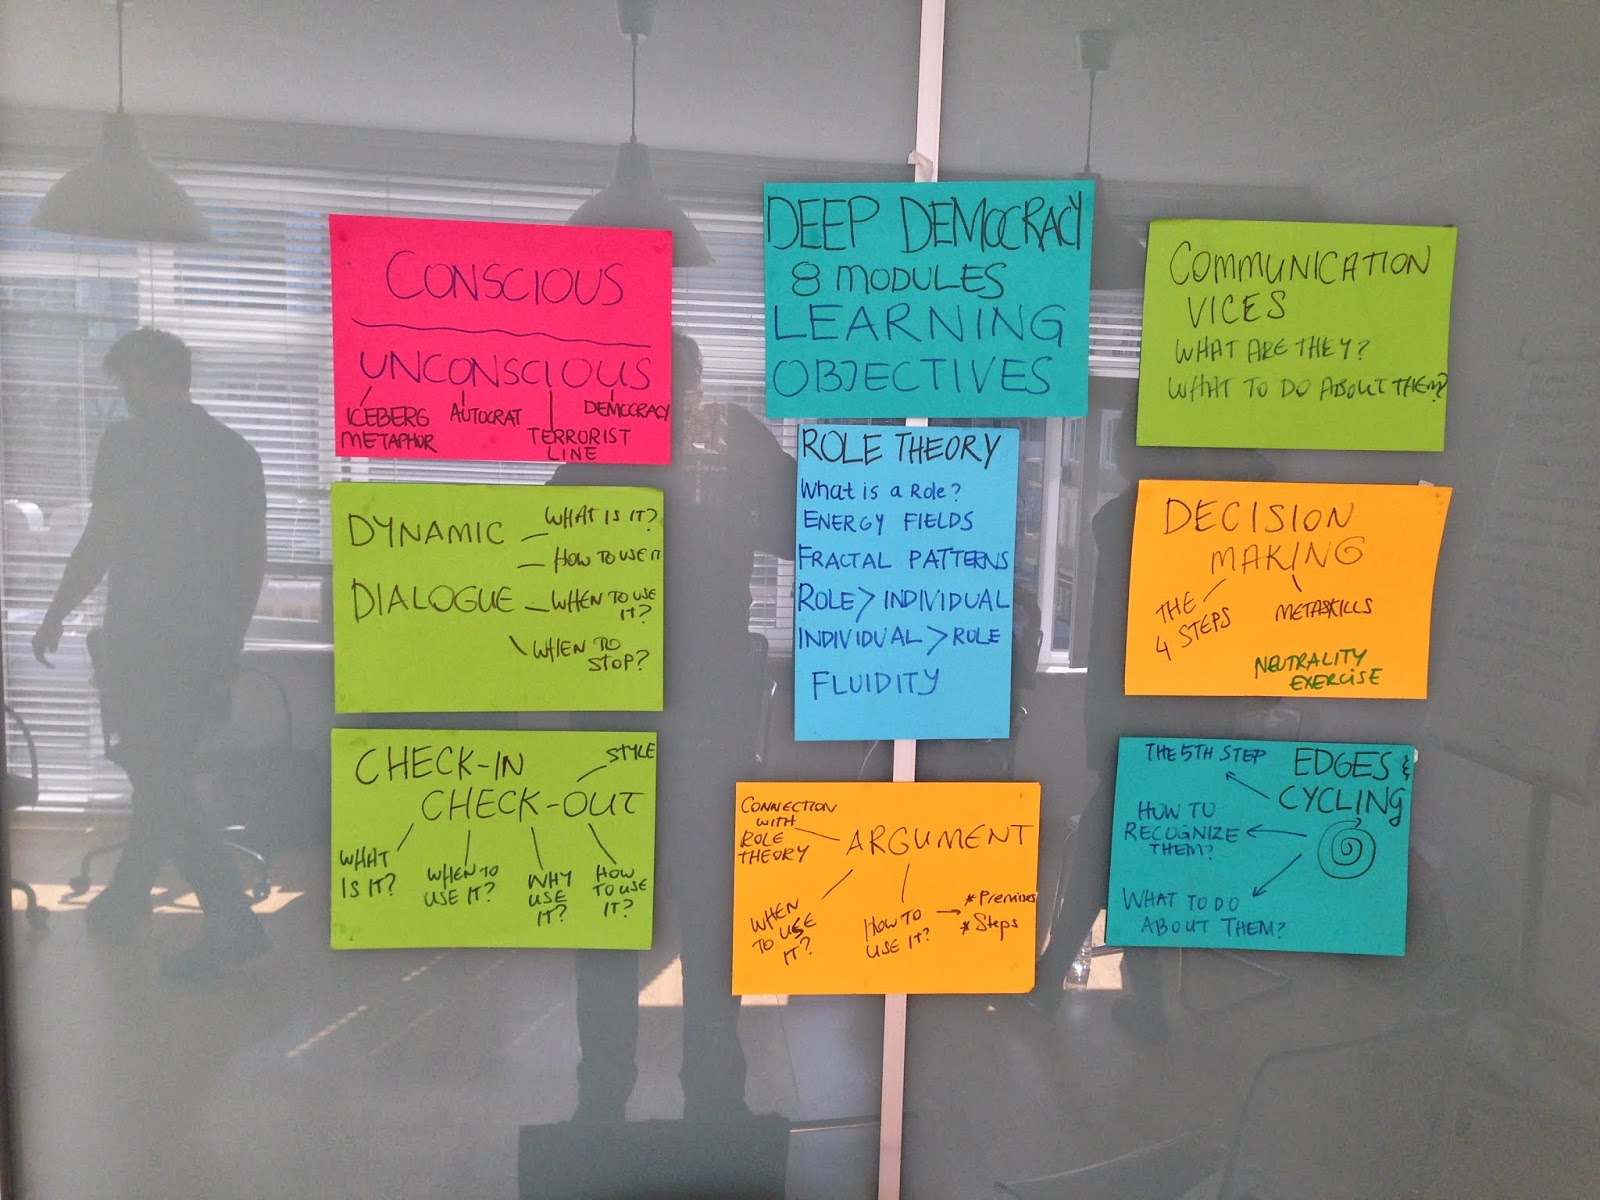 DEEP DEMOCRACY
8 MODULES
LEARNING
OBJECTIVES
CONSCIOUS
UNCONSCIOUS
ICEBERG
METAPHOR
AUTOCRAT
TERRORIST
LINE
DEMOCRACY
DYNAMIC
DIALOGUE
WHAT IS IT?
HOW TO USE IT
WHEN TO USE
IT?
WHEN TO
STOP?
CHECK-IN
CHECK-OUT
STYLE
WHAT
IS IT?
WHEN TO
USE IT?
WHY
USE
IT?
HOW
TO USE
IT?
ROLE THEORY
What is a Role?
ENERGY FIELDS
FRACTAL PATTERNS
ROLE > INDIVIDUAL
INDIVIDUAL > ROLE
FLUIDITY
CONNECTION
WITH
ROLE
THEORY
ARGUMENT
WHEN
TO USE
IT?
HOW TO
USE IT?
* Premises
* Steps
COMMUNICATION
VICES
WHAT ARE THEY?
WHAT TO DO ABOUT THEM?
DECISION
MAKING
THE
4 STEPS
METASKILLS
NEUTRALITY
EXERCISE
EDGES &
CYCLING
THE 5TH STEP
HOW TO
RECOGNIZE
THEM?
WHAT TO DO
ABOUT THEM?